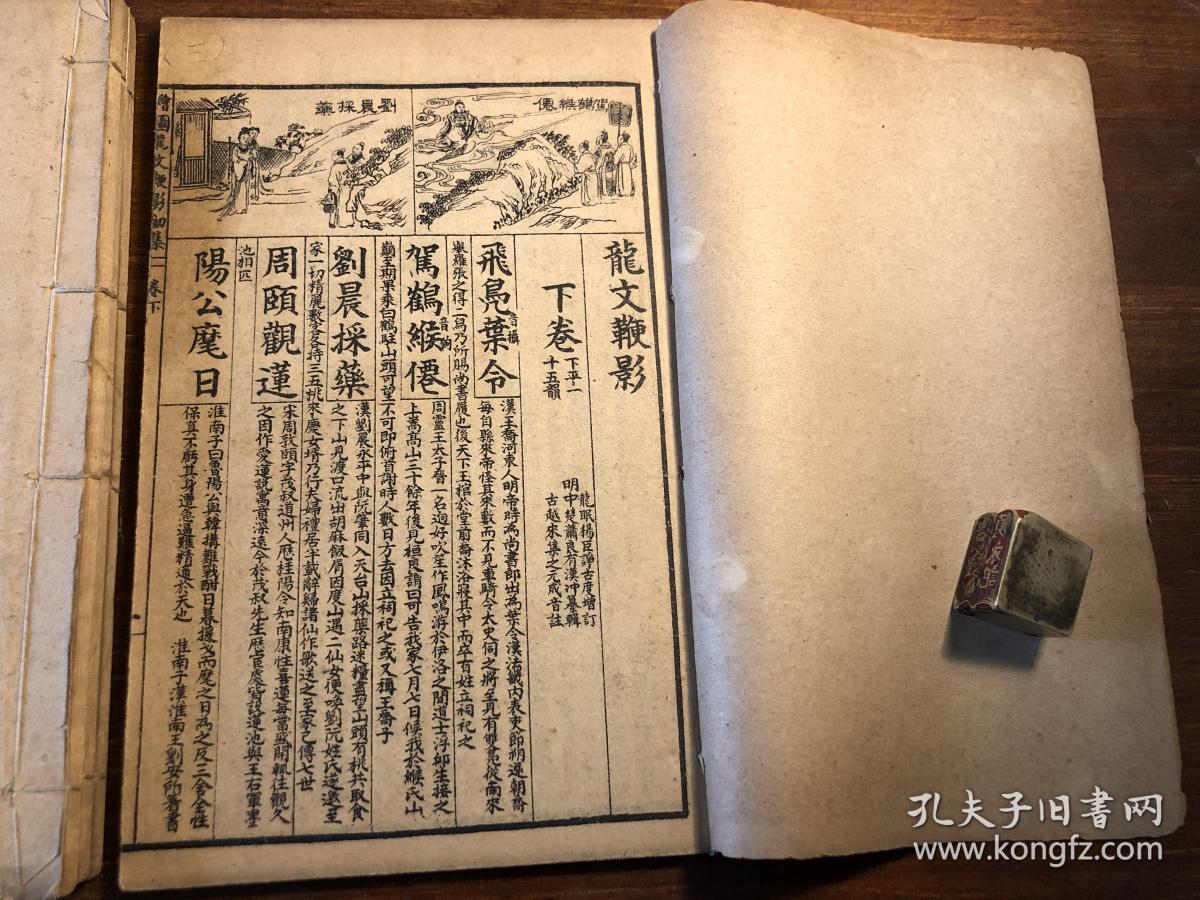 駕鶴緱僊
劉晨採藥
龍文鞭影
下卷
下平一
十五韻
龍眠楊臣諍古度增訂
明中楚蕭良有漢冲纂輯
古越來集之元成音註
飛鳧葉令
音攝
漢王喬河東人明帝時為尚書郎出為葉令漢法畿內表吏節朔還朝喬
每自縣來帝怪其來數而不見車騎令太史伺之將至見有雙鳧從南來
舉羅張之得二舄乃所賜尚書履也後天下玉棺於堂前喬沐浴寢其中而卒百姓立祠祀之
駕鶴緱僊
周靈王太子晉一名迥好吹笙作鳳鳴游於伊洛之間道士浮邱生接之
上嵩高山三十餘年後見桓良謂曰可告我家七月七日候我於緱氏山
巔至期果乘白鶴駐山頭可望不可即俯首謝時人數日方去因立祠祀之或又稱王喬子
劉晨採藥
漢劉晨永平中與阮肇同入天台山採藥路迷糧盡望山頭有桃共取食
之下山見渡口流出胡麻飯屑因度山遇二仙女便喚劉阮姓氏遂邀至
家一切精麗數客各持三五桃來慶女婿乃行夫婦禮居半載辭歸諸仙作歌送之至家已傳七世
周頤觀蓮
宋周敦頤字茂叔道州人歷桂陽令知南康性喜蓮每當盛開輒往觀久
之因作愛蓮說寓意深遠今於茂叔先生歷宦處皆設蓮池與王右軍墨
池相匹
陽公麾日
淮南子曰魯陽公與韓搆難戰酣日暮援戈而麾之日為之反三舍全性
保真不虧其身遭急逼難精通於天也 淮南子漢淮南王劉安所著書
繪圖龍文鞭影初集
卷下
一
孔夫子旧书网
www.kongfz.com